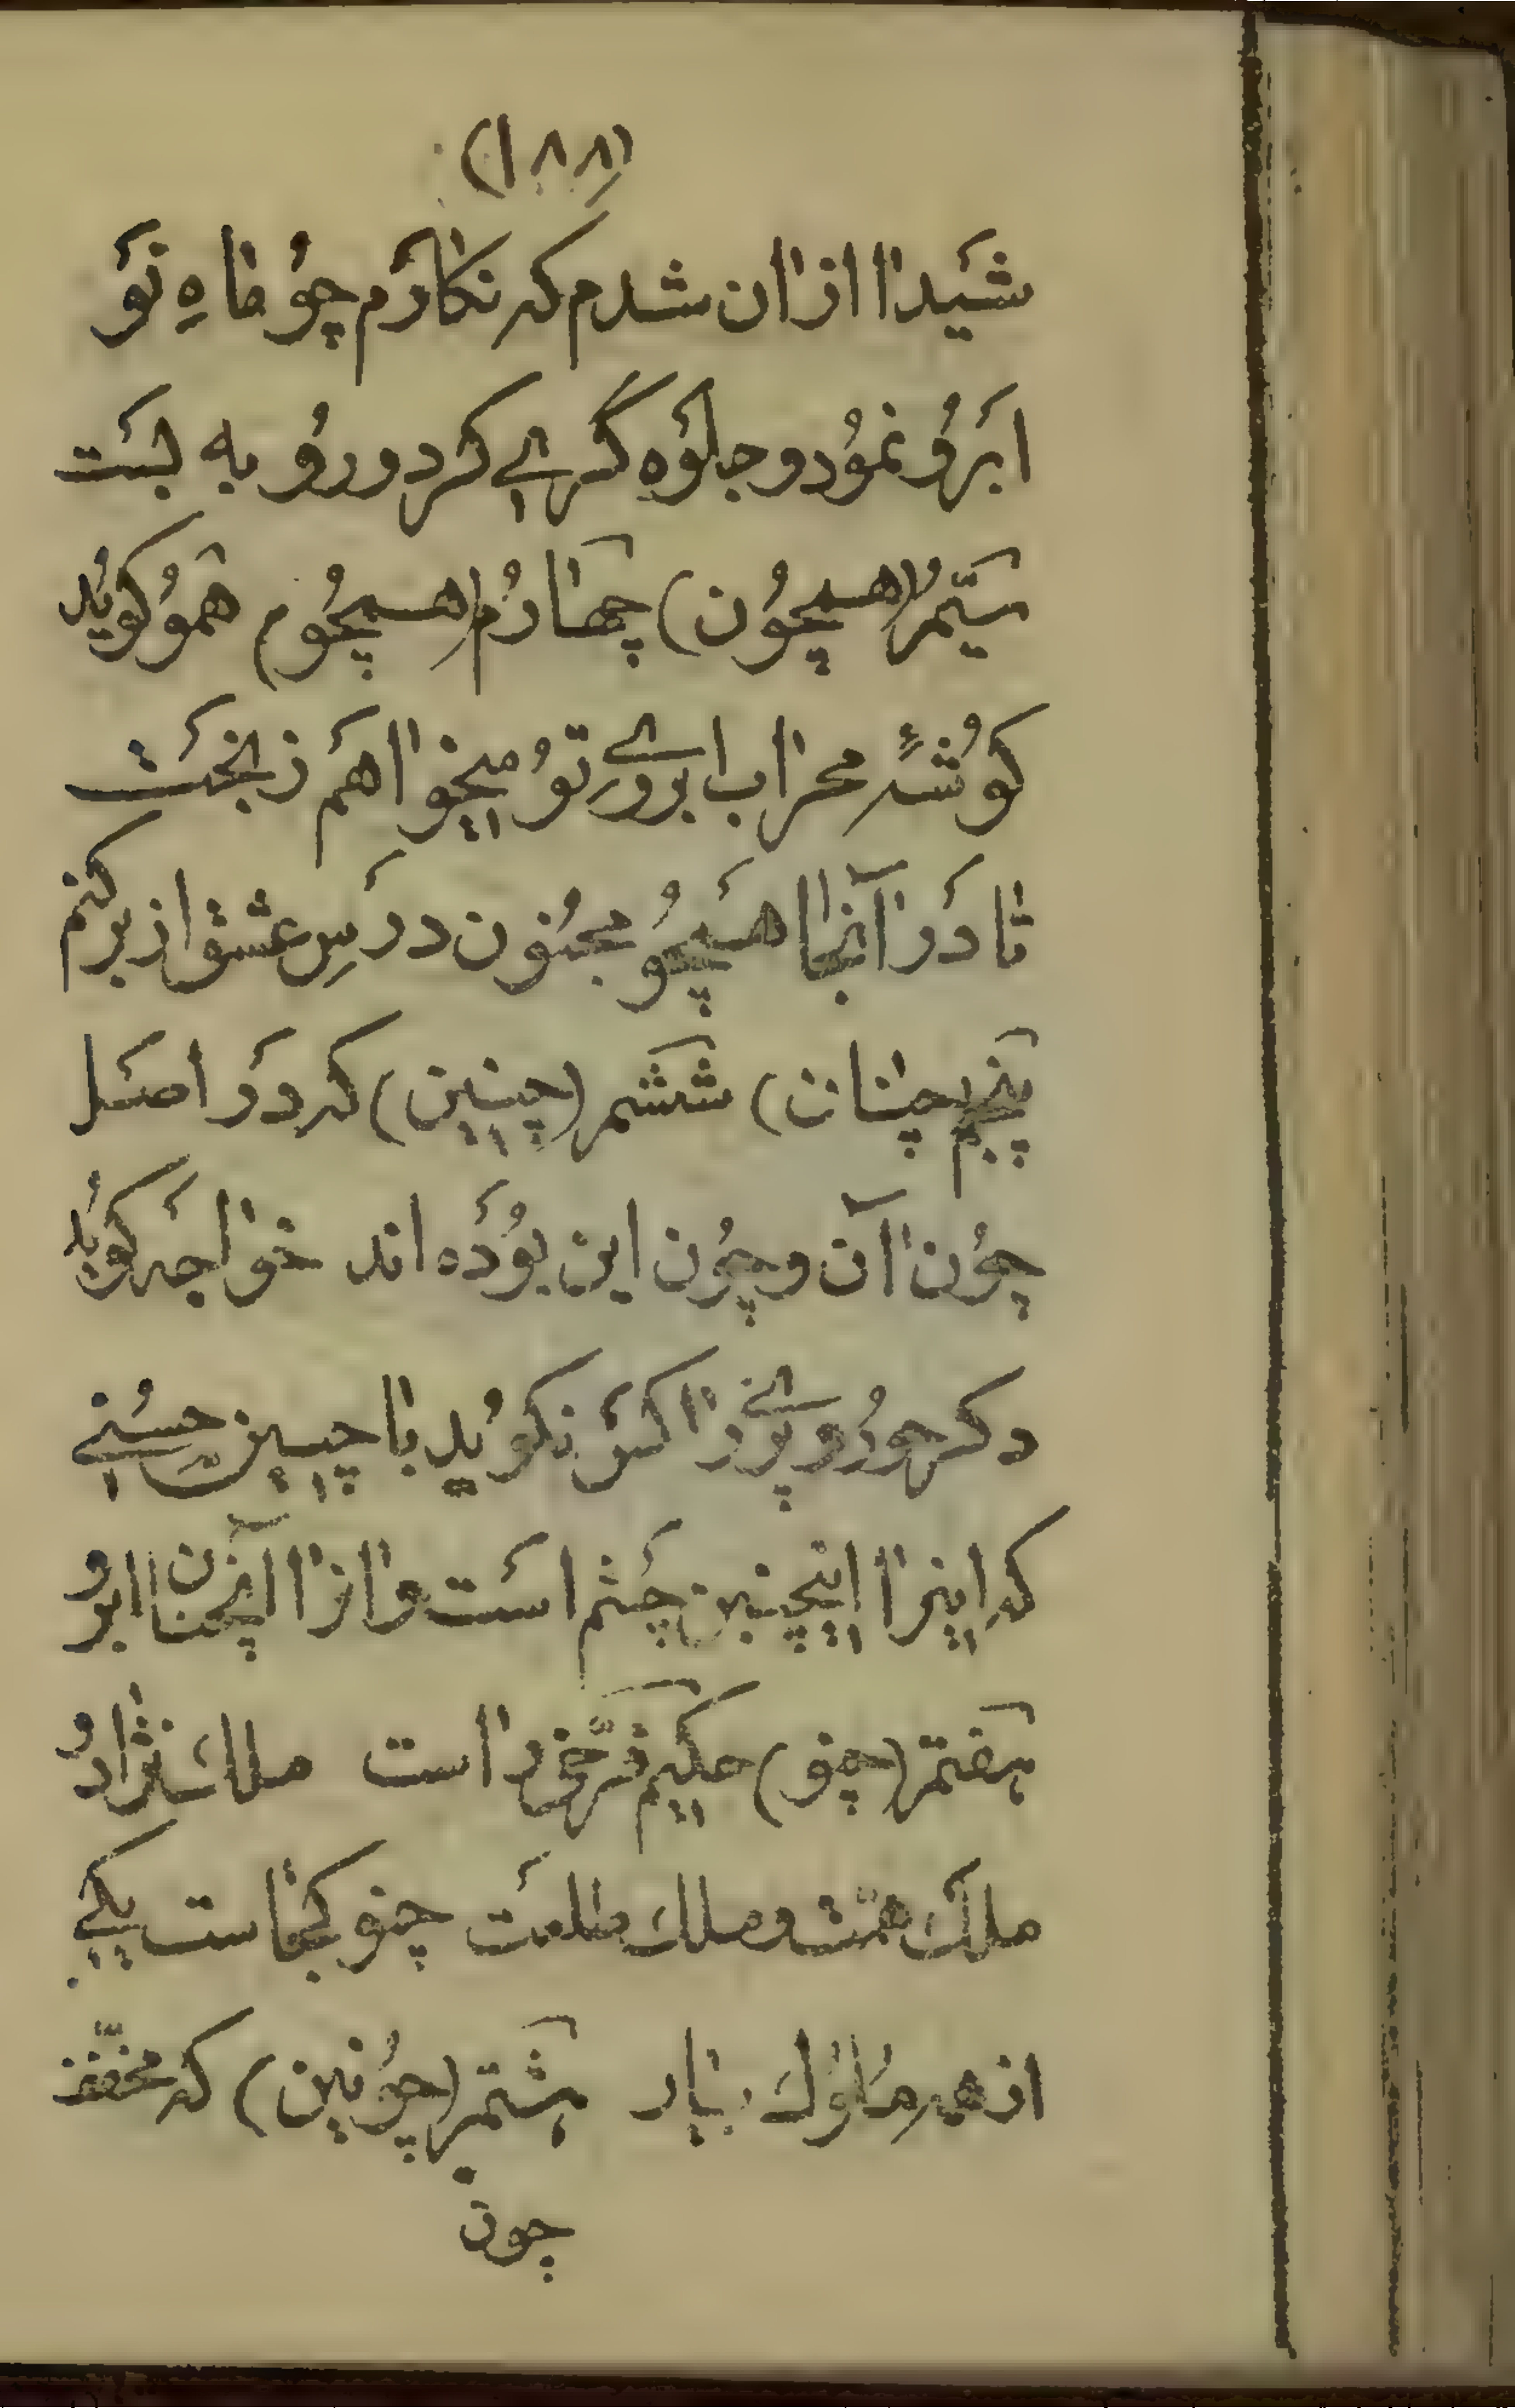 (۱۸۸)
شَیدا ازان شدم که نگارَم چوُ ماهِ نَو
ابَروُ نموُد و جلوَه گرے کرد و روُ به بَست
سَیّمُ (همیچوُن) چهارُم (همیچوُم) هَموُ گویُد
گوُشهٔ محراب ابروےِ توُ میخواهَم ز بخَت
تا دَر آنجا هَمیچوُ مجنوُن درَسِ عشق از بر کنم
پنجم چنان) ششَم (چنین) که دَر اصَل
چوُن آن و چوُن این بوُدَه اند خواجَه گویُد
دگر حوُر و پرے را کسَ نگویُد با چنین حسُنے
که اینرا اینچنین چَشم اسَت و ازا آنچنان ابرو
هَفتم (چنو) حکیم فَرّخے راست ملک نژاد و
ملک همّت و ملک طلعَت چنو کجاست یکے
از همه ملوُک بیار هشَتم (چوُنین) که مخفّف
چون